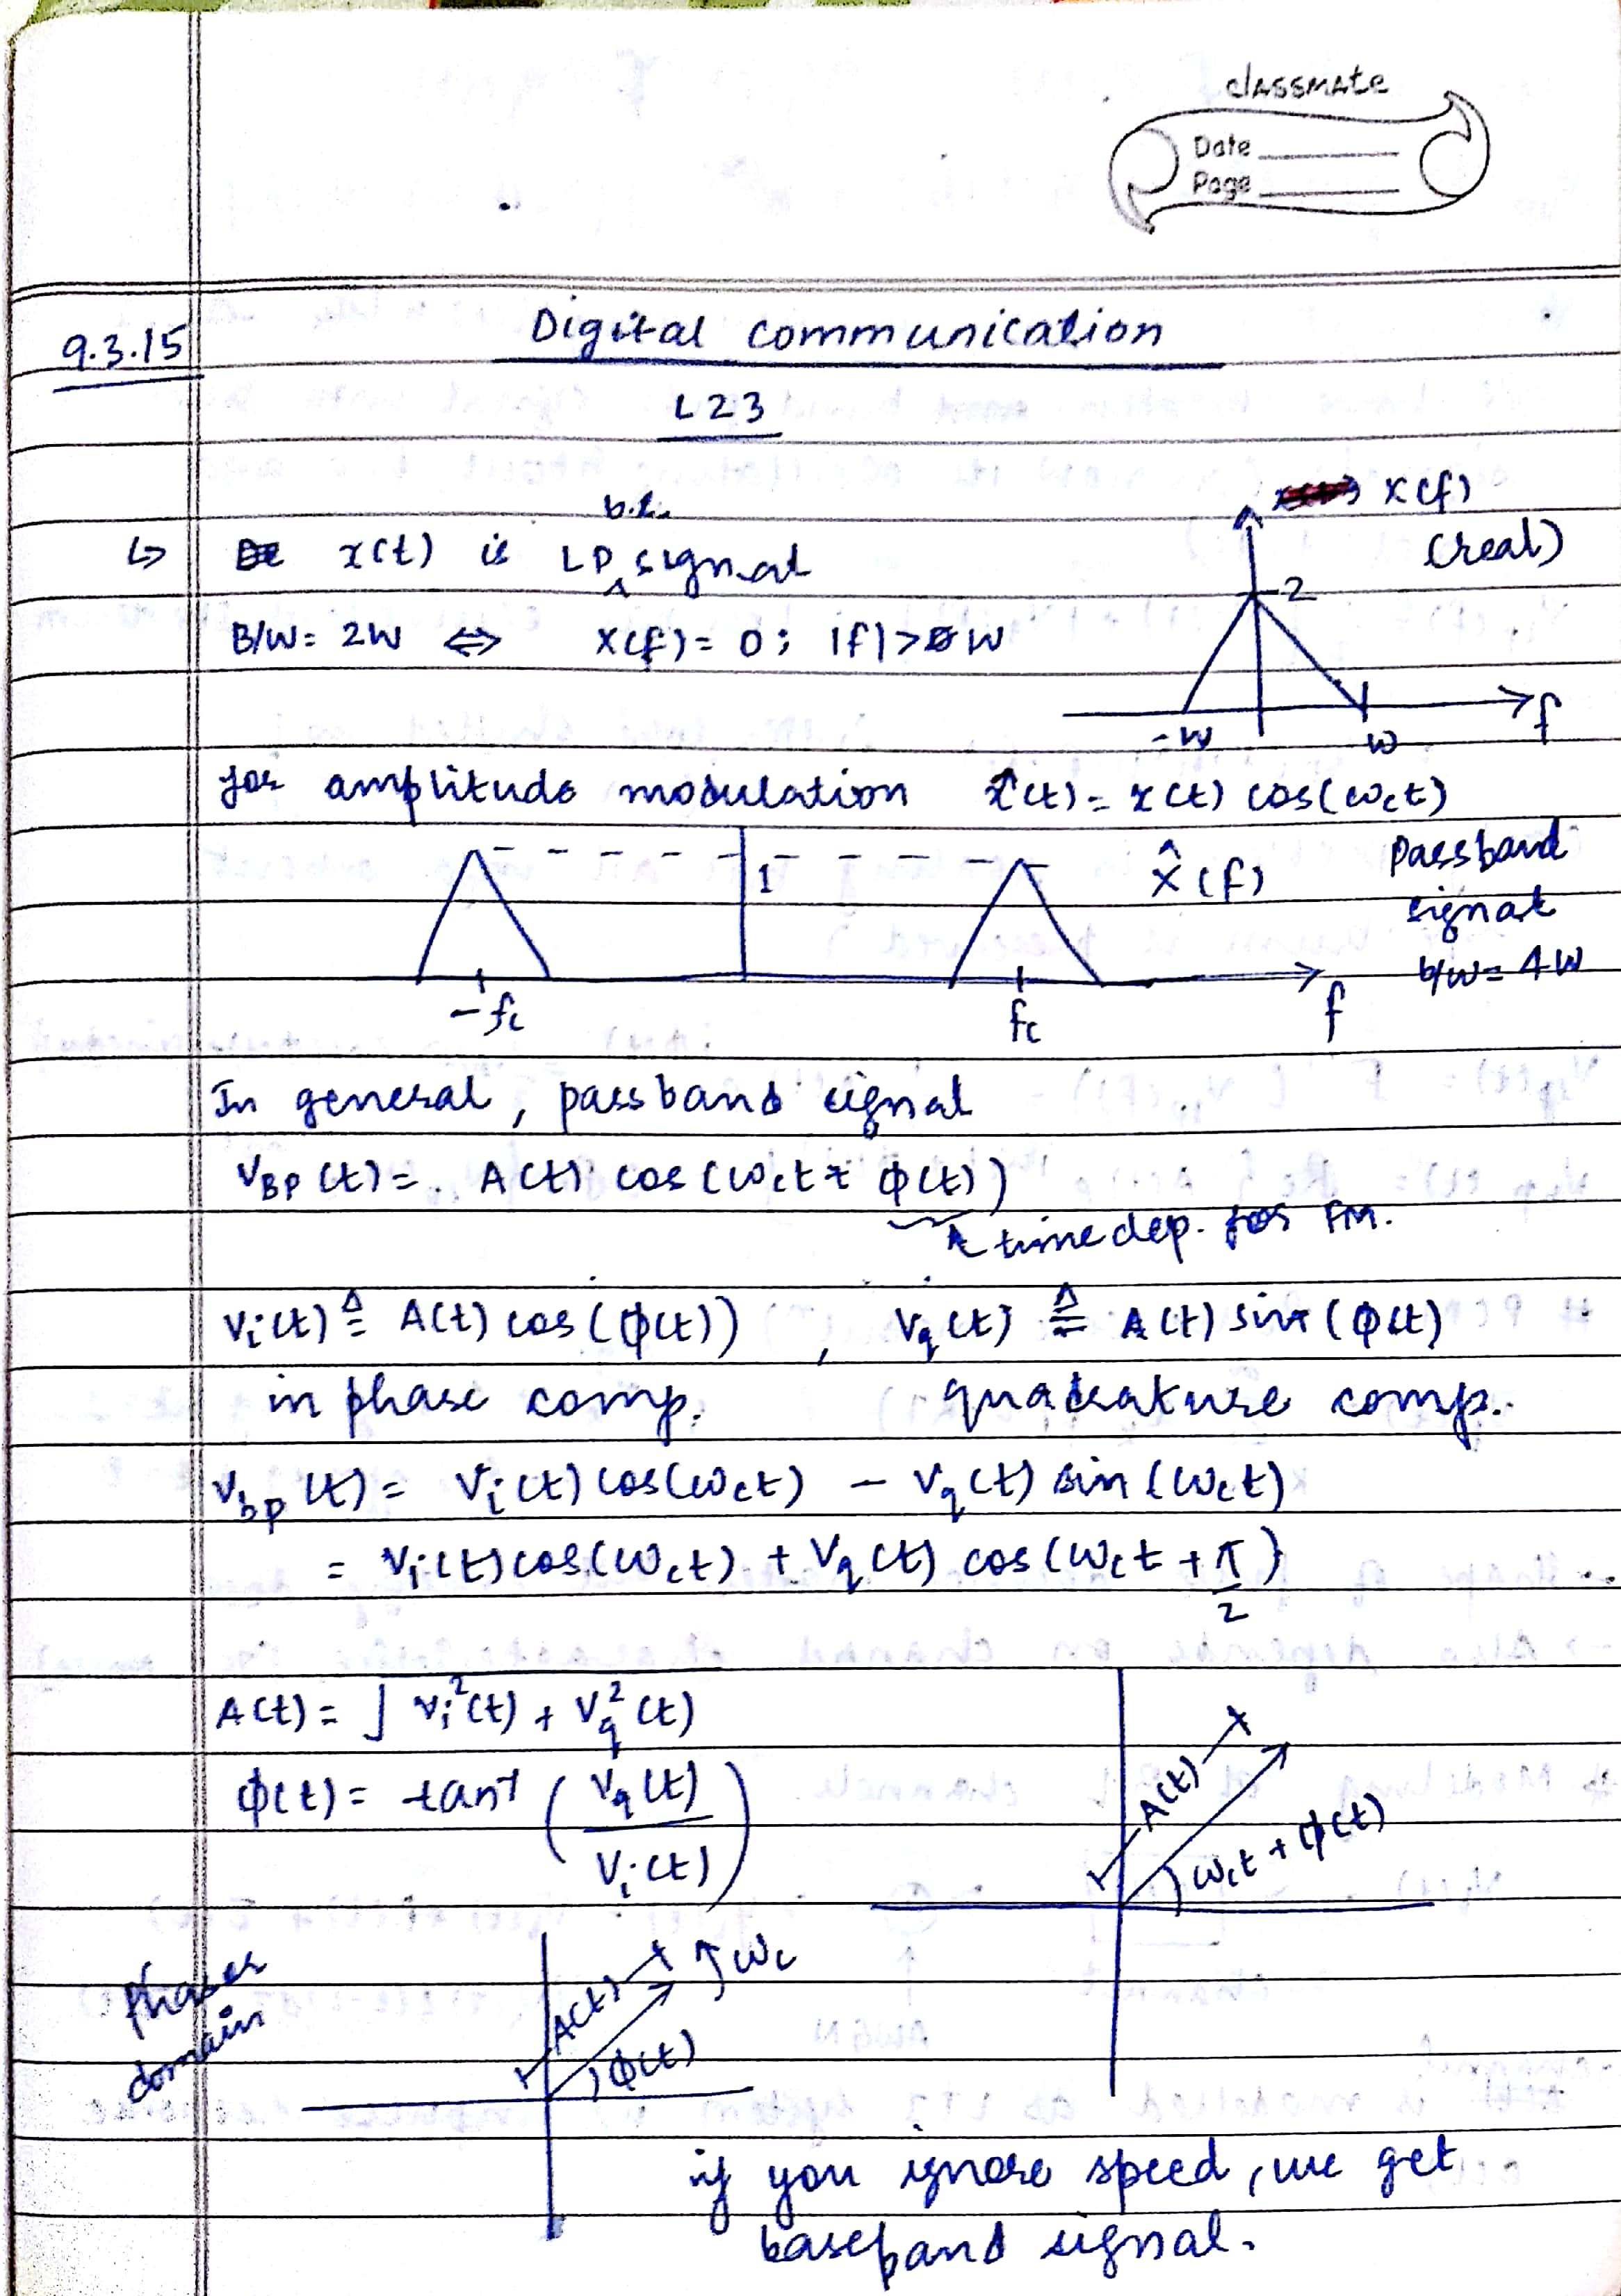 classmate
Date
Page
9.3.15
Digital communication
L23
x(f)
(real)
b.l.
↳ x(t) is LP signal
2
B/W = 2W ⇔ X(f) = 0 ; |f| > W
-W W f
for amplitude modulation x̂(t) = x(t) cos(ωct)
1 X̂(f) Passband
signal
b/w = 4W
-fc fc f
In general, passband signal
VBP(t) = A(t) cos(ωct + φ(t))
time dep. for FM.
Vi(t) ≜ A(t) cos(φ(t)) , Vq(t) ≜ A(t) sin(φ(t)
in phase comp. quadrature comp.
Vbp(t) = Vi(t) cos(ωct) - Vq(t) sin(ωct)
= Vi(t) cos(ωct) + Vq(t) cos(ωct + π/2)
A(t) = √Vi²(t) + Vq²(t)
φ(t) = tan⁻¹ (Vq(t)/Vi(t))
A(t)
ωct + φ(t)
Phasor
domain
A(t) ωc
φ(t)
if you ignore speed, we get
baseband signal.